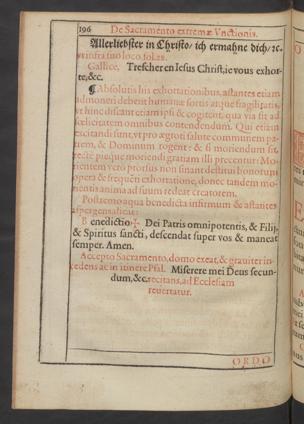 196 De Sacramento extremæ Vnctionis.
Allerliebster in Christo/ ich ermahne dich/ ꝛc.
vt infra suo loco. fol.
Gallice. Trescher en Iesus Christ, ie vous exhor-
te, &c.
¶ Absolutis hisexhortationibus, astantes etiam
admoneri debent humanæ sortis atque fragilitatis,
vt hinc discant etiam ipsi & cogitent, qua via sit ad
cælicertatem omnibus contendendum. Qui etiam
excitandi sunt, vt pro ægroti salute communem pa-
trem, & Dominum rogent: & si moriendum sit,
recte pieque moriendi gratiam illi precentur: Mo-
rientem vero prorsus non sinant destitui bonorum
opera & frequēti exhortatione, donec tandem mo-
rientis anima ad suum redeat creatorem.
Postremo aqua benedicta infirmum & astantes
aspergens alicui:
Benedictio ✠ Dei Patris omnipotentis, & Filij,
& Spiritus sancti, descendat super vos & maneat
semper. Amen.
Accepto Sacramento, domo exeat, & grauiter in-
cedens ac in iunere Psal. Miserere mei Deus secun-
dum, &c. recitans, ad Ecclesiam
reuertatur.
ORDO